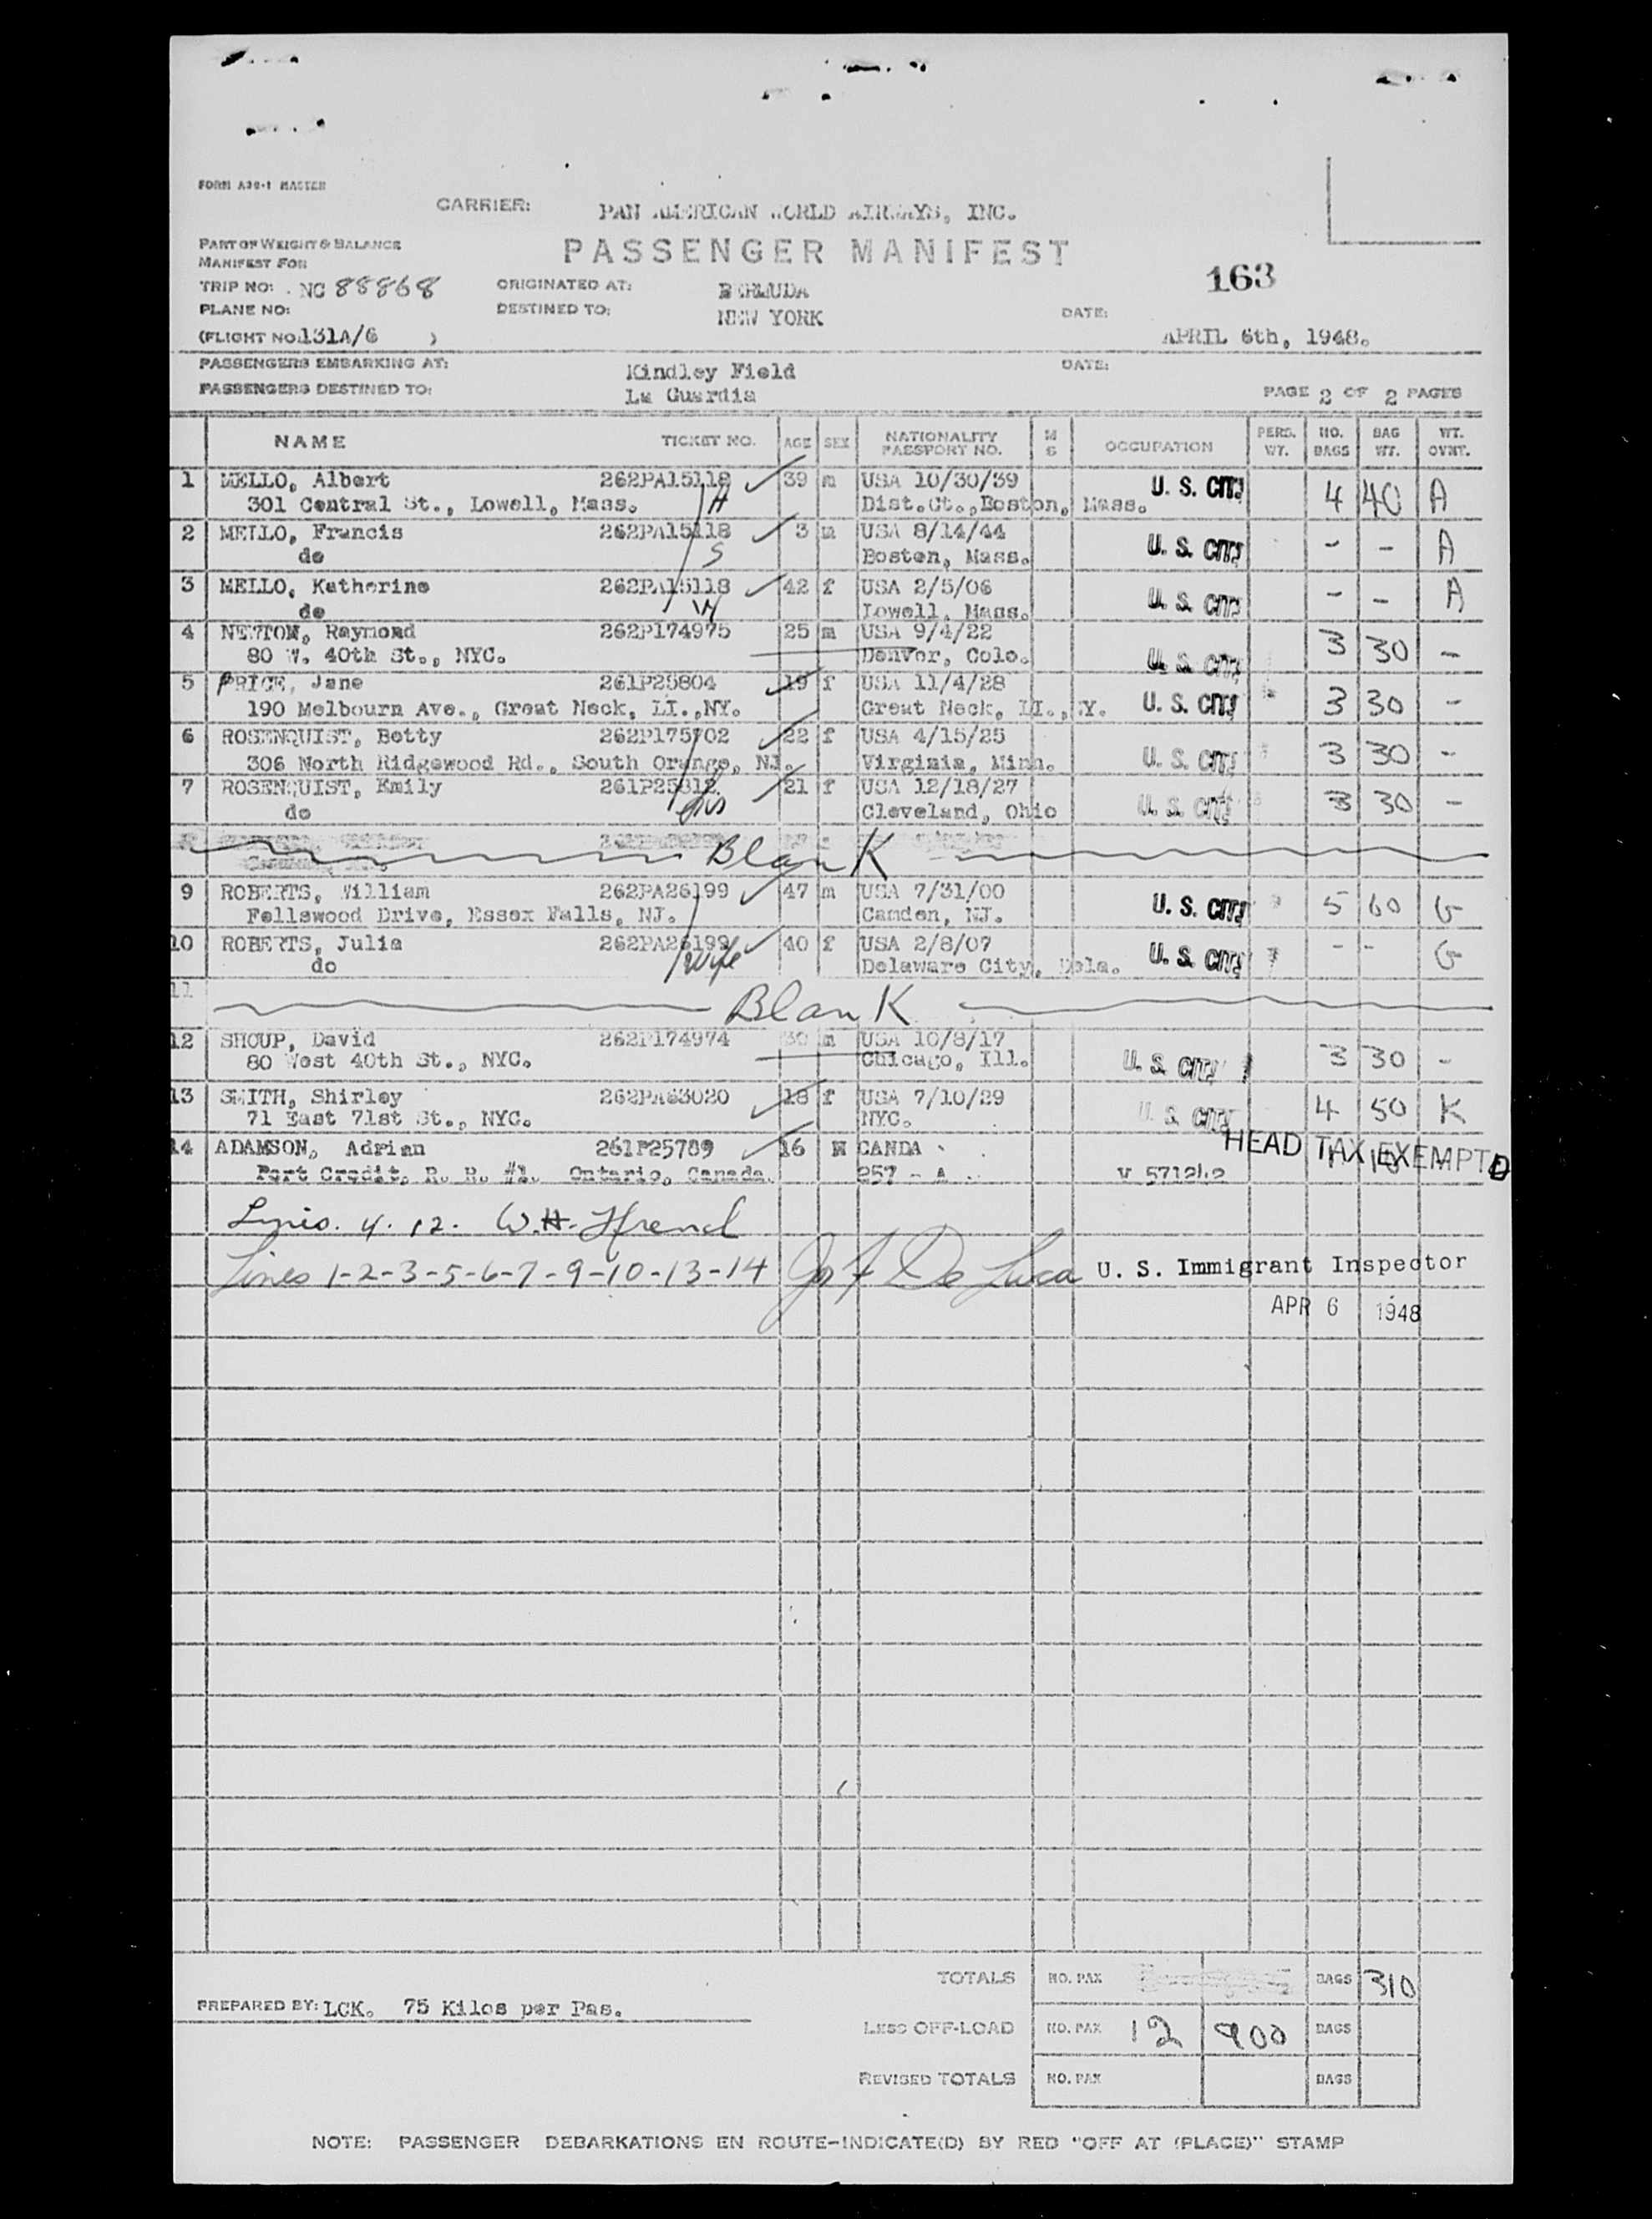 FORM A30-1 MASTER
CARRIER: PAN AMERICAN WORLD AIRWAYS, INC.
PART OF WEIGHT & BALANCE
MANIFEST FOR
PASSENGER MANIFEST
163
TRIP NO: NC 88868 ORIGINATED AT: BERMUDA
PLANE NO: DESTINED TO: NEW YORK DATE:
(FLIGHT NO.131A/6 ) APRIL 6th, 1948.
PASSENGERS EMBARKING AT: Kindley Field DATE:
PASSENGERS DESTINED TO: La Guardia PAGE 2 OF 2 PAGES
NAME TICKET NO. AGE SEX NATIONALITY PASSPORT NO. M S OCCUPATION PERS. WT. NO. BAGS BAG WT. WT. OVNT.
1 MELLO, Albert 262PA15118 39 m USA 10/30/39 U. S. CIT. 4 40 A
301 Central St., Lowell, Mass. H Dist.Ct.,Boston, Mass.
2 MELLO, Francis 262PA15118 3 m USA 8/14/44 U. S. CIT. - - A
do S Boston, Mass.
3 MELLO, Katherine 262PA15118 42 f USA 2/5/06 U. S. CIT. - - A
do W Lowell, Mass.
4 NEWTON, Raymond 262P174975 25 m USA 9/4/22 U. S. CIT. 3 30 -
80 W. 40th St., NYC. Denver, Colo.
5 PRICE, Jane 261P25804 19 f USA 11/4/28 U. S. CIT. 3 30 -
190 Melbourn Ave., Great Neck, LI.,NY. Great Neck, LI., NY.
6 ROSENQUIST, Betty 262P175702 22 f USA 4/15/25 U. S. CIT. 3 30 -
306 North Ridgewood Rd., South Orange, NJ. Virginia, Minn.
7 ROSENQUIST, Emily 261P25812 21 f USA 12/18/27 U. S. CIT. 3 30 -
do Cleveland, Ohio
Blank
9 ROBERTS, William 262PA26199 47 m USA 7/31/00 U. S. CIT. 5 60 G
Fellswood Drive, Essex Falls, NJ. Camden, NJ.
10 ROBERTS, Julia 262PA26199 40 f USA 2/8/07 U. S. CIT. - - G
do Wife Delaware City, Dela.
11 Blank
12 SHOUP, David 262P174974 30 m USA 10/8/17 U. S. CIT. 3 30 -
80 West 40th St., NYC. Chicago, Ill.
13 SMITH, Shirley 262PA63020 18 f USA 7/10/29 U. S. CIT. 4 50 K
71 East 71st St., NYC. NYC.
14 ADAMSON, Adrian 261P25789 16 M CANDA HEAD TAX EXEMPTD
Port Credit, R. R. #1. Ontario, Canada. 257 - A V 571242
4. 12. W.H.
Lines 1-2-3-5-6-7-9-10-13-14 De Luca U. S. Immigrant Inspector
APR 6 1948
TOTALS NO. PAX BAGS 310
PREPARED BY: LCK. 75 Kilos per Pas.
LESS OFF-LOAD NO. PAX 12 900 BAGS
REVISED TOTALS NO. PAX BAGS
NOTE: PASSENGER DEBARKATIONS EN ROUTE-INDICATE(D) BY RED "OFF AT (PLACE)" STAMP